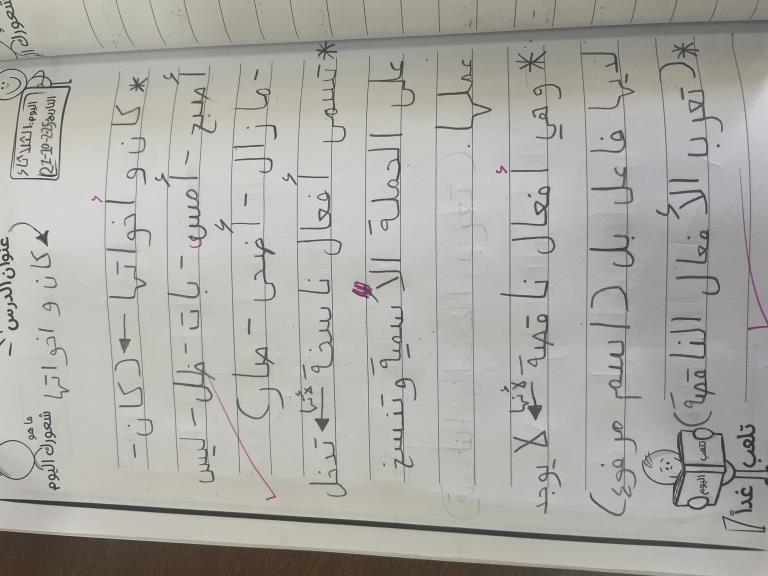 اليوم: الثلاثاء
عنوان الدرس :
كان و اخواتها
ما هو
شعورك اليوم
* كان و أخواتها ← (كان -
أصبح - أمسى - بات - ظل - ليس
- مازال - أضحى - صار)
* تسمى أفعال ناسخة لأنها ← تدخل
على الجملة الأسمية وتنسخ
عملها
* وهي أفعال ناقصة لأنها ← لا يوجد
لديها فاعل بل (اسم مرفوع)
* (تعرب الأفعال الناقصة)
تتعب
اليوم
تلعب غداً